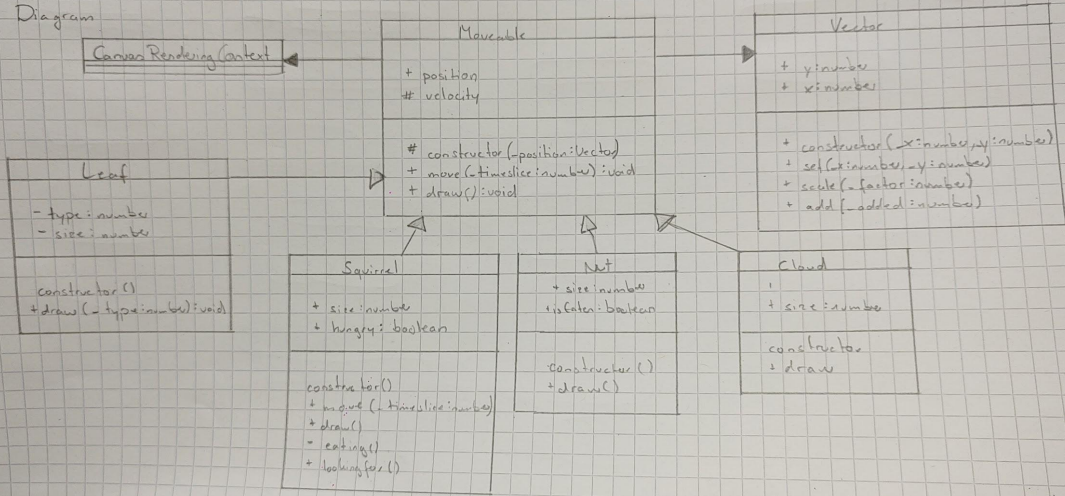 Diagram
CanvasRenderingContext
Moveable
+ position
# velocity
# constructor(_position:Vector)
+ move(_timeslice:number):void
+ draw():void
Vector
+ y:number
+ x:number
+ constructor(_x:number,_y:number)
+ set(_x:number,_y:number)
+ scale(_factor:number)
+ add(_added:number)
Leaf
- type:number
- size:number
constructor()
+ draw(_type:number):void
Squirrel
+ size:number
+ hungry: boolean
constructor()
+ move(_timeslice:number)
+ draw()
- eating()
+ lookingfor()
Nut
+ size:number
isEaten:boolean
constructor()
+ draw()
Cloud
+ size:number
constructor
+ draw